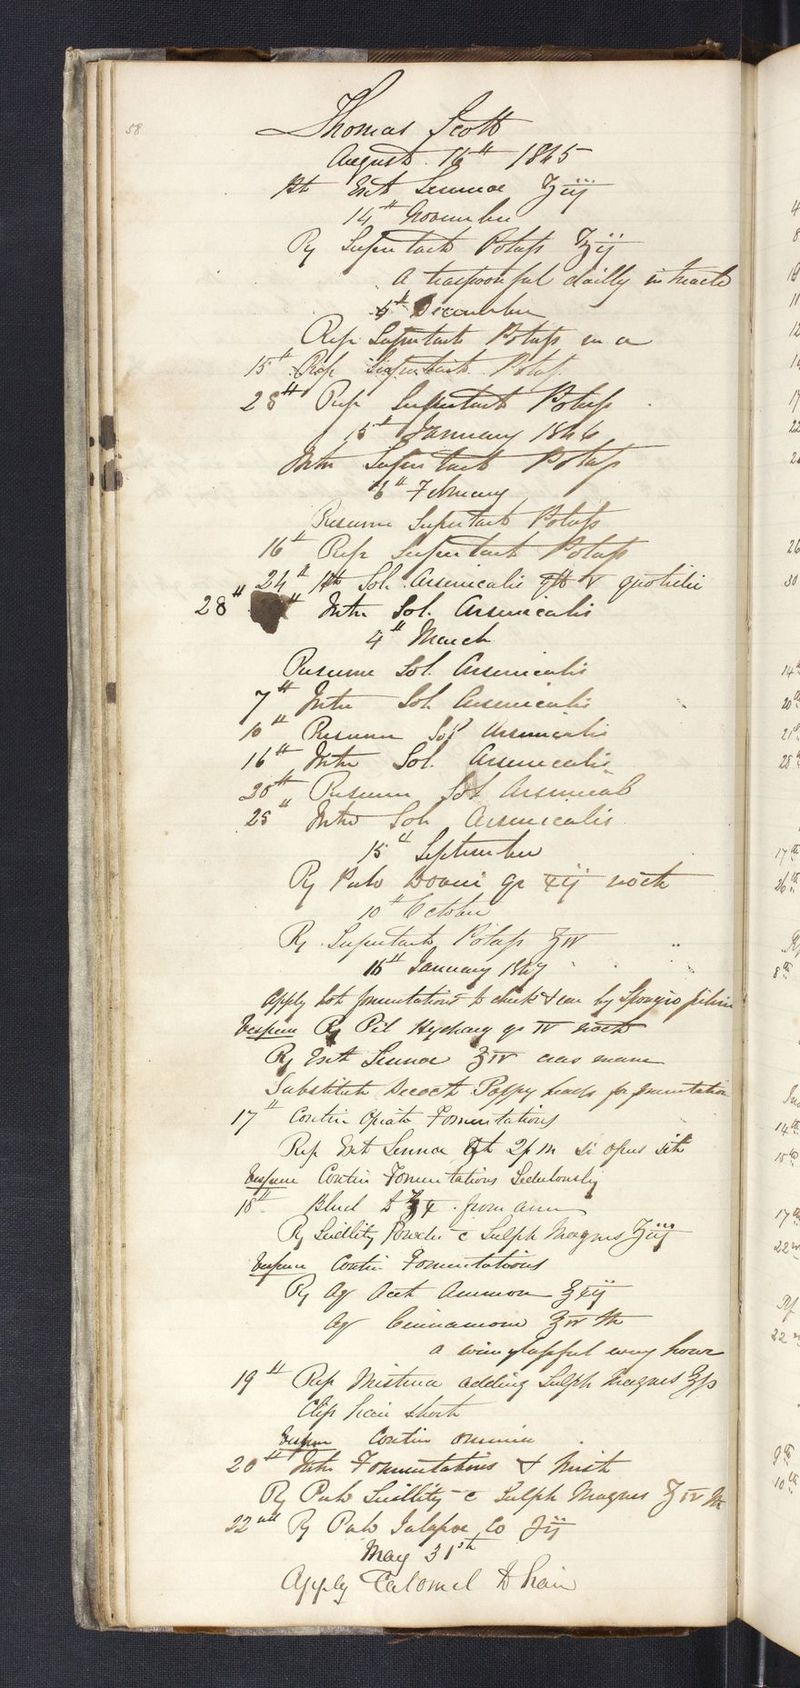 58
Thomas Scott
August 16th 1845
Ht Ext Sennae ʒiij
14th November
Rx Supertart Potass ℥ij
a teaspoonful dailly in treacle
4th December
Rep Supertart Potass
15th Rep Supertart Potass
28th Rep Supertart Potass
15th January 1846
Intr Supertart Potass
6th February
Resume Supertart Potass
16th Rep Supertart Potass
24th Ht Sol. Arsenicalis gtt v quotidie
28th Intr Sol. Arsenicalis
4th March
Resume Sol. Arsenicalis
7th Intr Sol Arsenicalis
10th Resume Sol Arsenicalis
16th Intr Sol. Arsenicalis
20th Resume Sol Arsenical
25th Intr Sol Arsenicalis
15th September
Rx Pulv Doveri gr xij nocte
10th October
Rx Supertart Potass ℥iv
16th January 1847
Apply hot fomentations to cheek & ear by Spongio piline
Vespere Rx Pil Hydrarg gr iv nocte
Rx Ext Sennae ʒiv cras mane
Substitute Decoct Poppy heads for fomentation
17th Contin Opiate Fomentations
Rep Ext Sennae at 2 p m si opus sit
Vespere Contin Fomentations Sedulously
18th Bleed to ℥x from arm
Rx Seidlitz Powder c Sulph Magnes ʒiij
Vespere Contin Fomentations
Rx Aq Acet Ammon ℥xij
Aq Cinnamomi ℥iv M
a wineglassful every hour
19th Rep Mistura adding Sulph Magnes ℥p
Clip hair short
Vespere Contin omnia
20th Intr Fomentations & Mist
Rx Pulv Seidlitz c Sulph Magnes ʒiv M
22nd Rx Pulv Jalapae Co ʒij
May 31st
Apply Calomel to hair